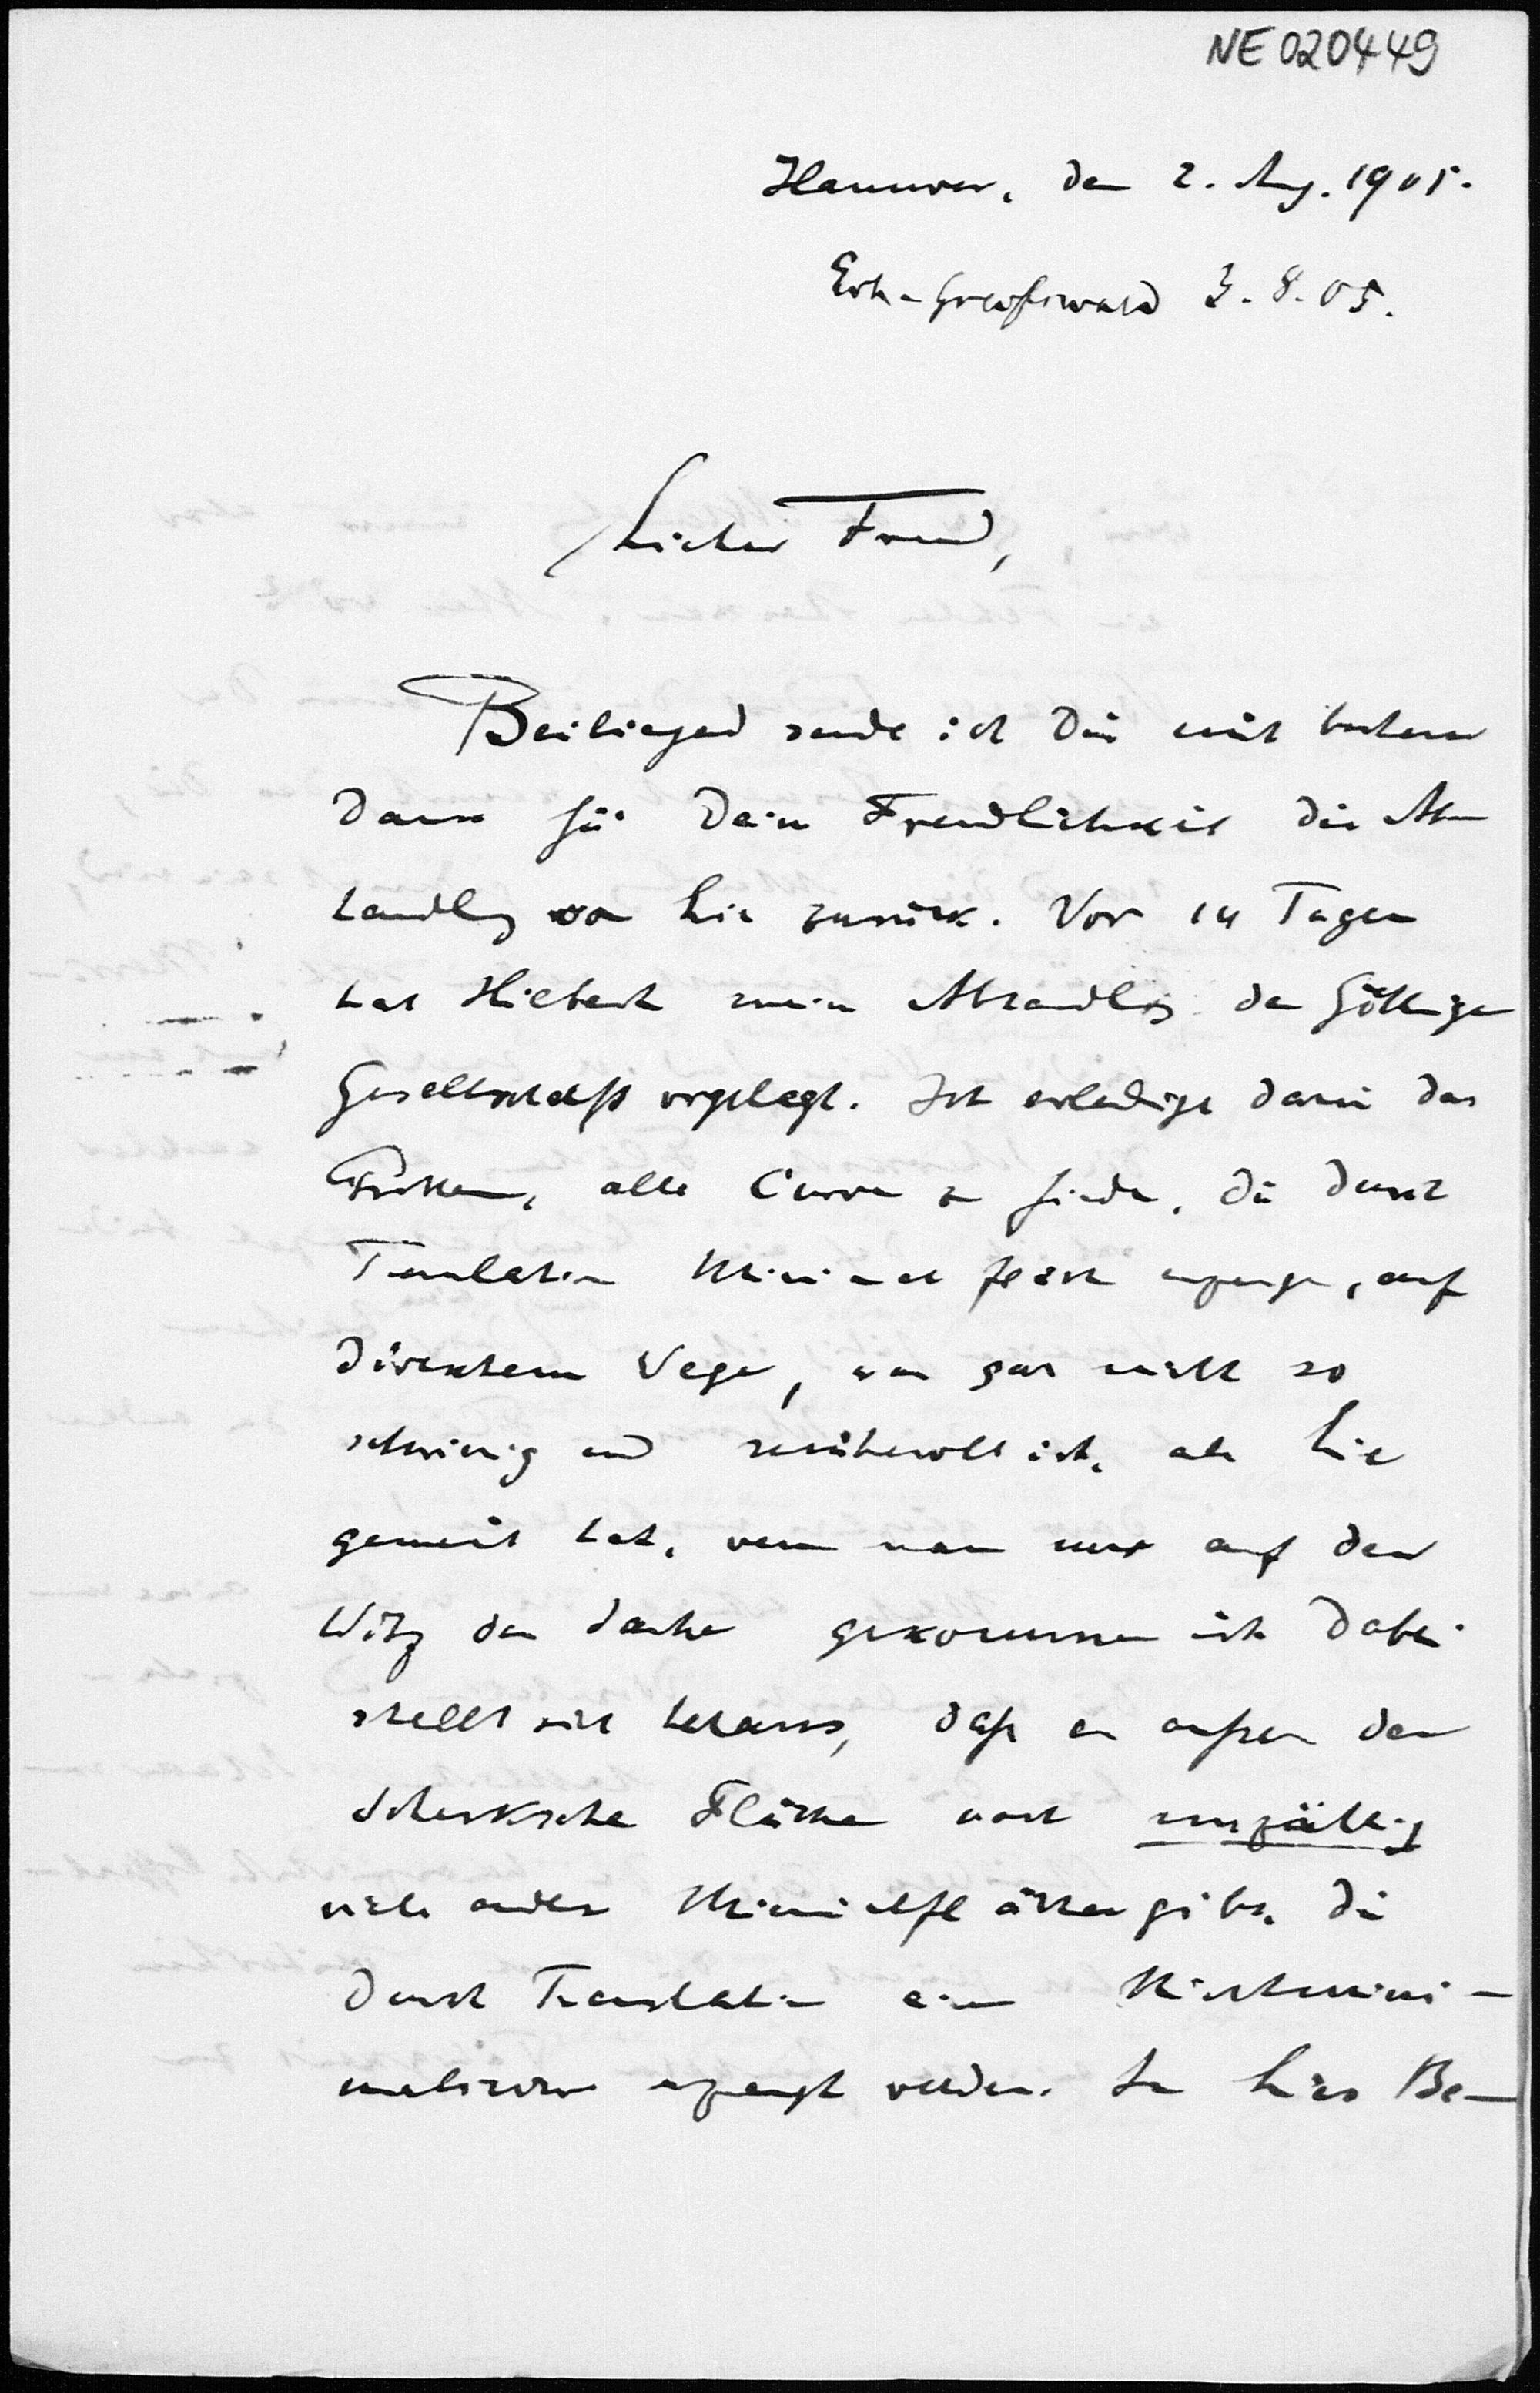 NE 020449
Hannover, den 2. Aug. 1905.
Erh. Greifswald 3.8.05.
Lieber Freund,
Beiliegend sende ich Dir mit bestem
Dank für Deine Freundlichkeit die Ab-
handlung von Lie zurück. Vor 14 Tagen
hat Hilbert meine Abhandlung der Göttinger
Gesellschaft vorgelegt. Ich erledige darin das
Problem, alle Curven zu finden, die durch
Translation Minimalflächen erzeugen, auf
direktem Wege, was gar nicht so
schwierig und mühevoll ist, als Lie
gemeint hat, wenn man nur auf den
Witz der Sache gekommen ist. Dabei
stellt sich heraus, daß es außer der
Scherkschen Fläche noch unzählig
viele andere Minimalflächen gibt, die
durch Translation einer Nichtmini-
malcurve erzeugt werden. In Lies Be-